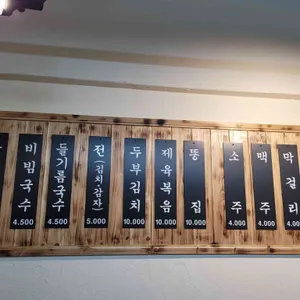 비빔국수
4.500
들기름국수
4.500
전(김치/감자)
5.000
두부김치
10.000
제육볶음
10.000
똥집
10.000
소주
4.000
맥주
4.000
막걸리
4.000